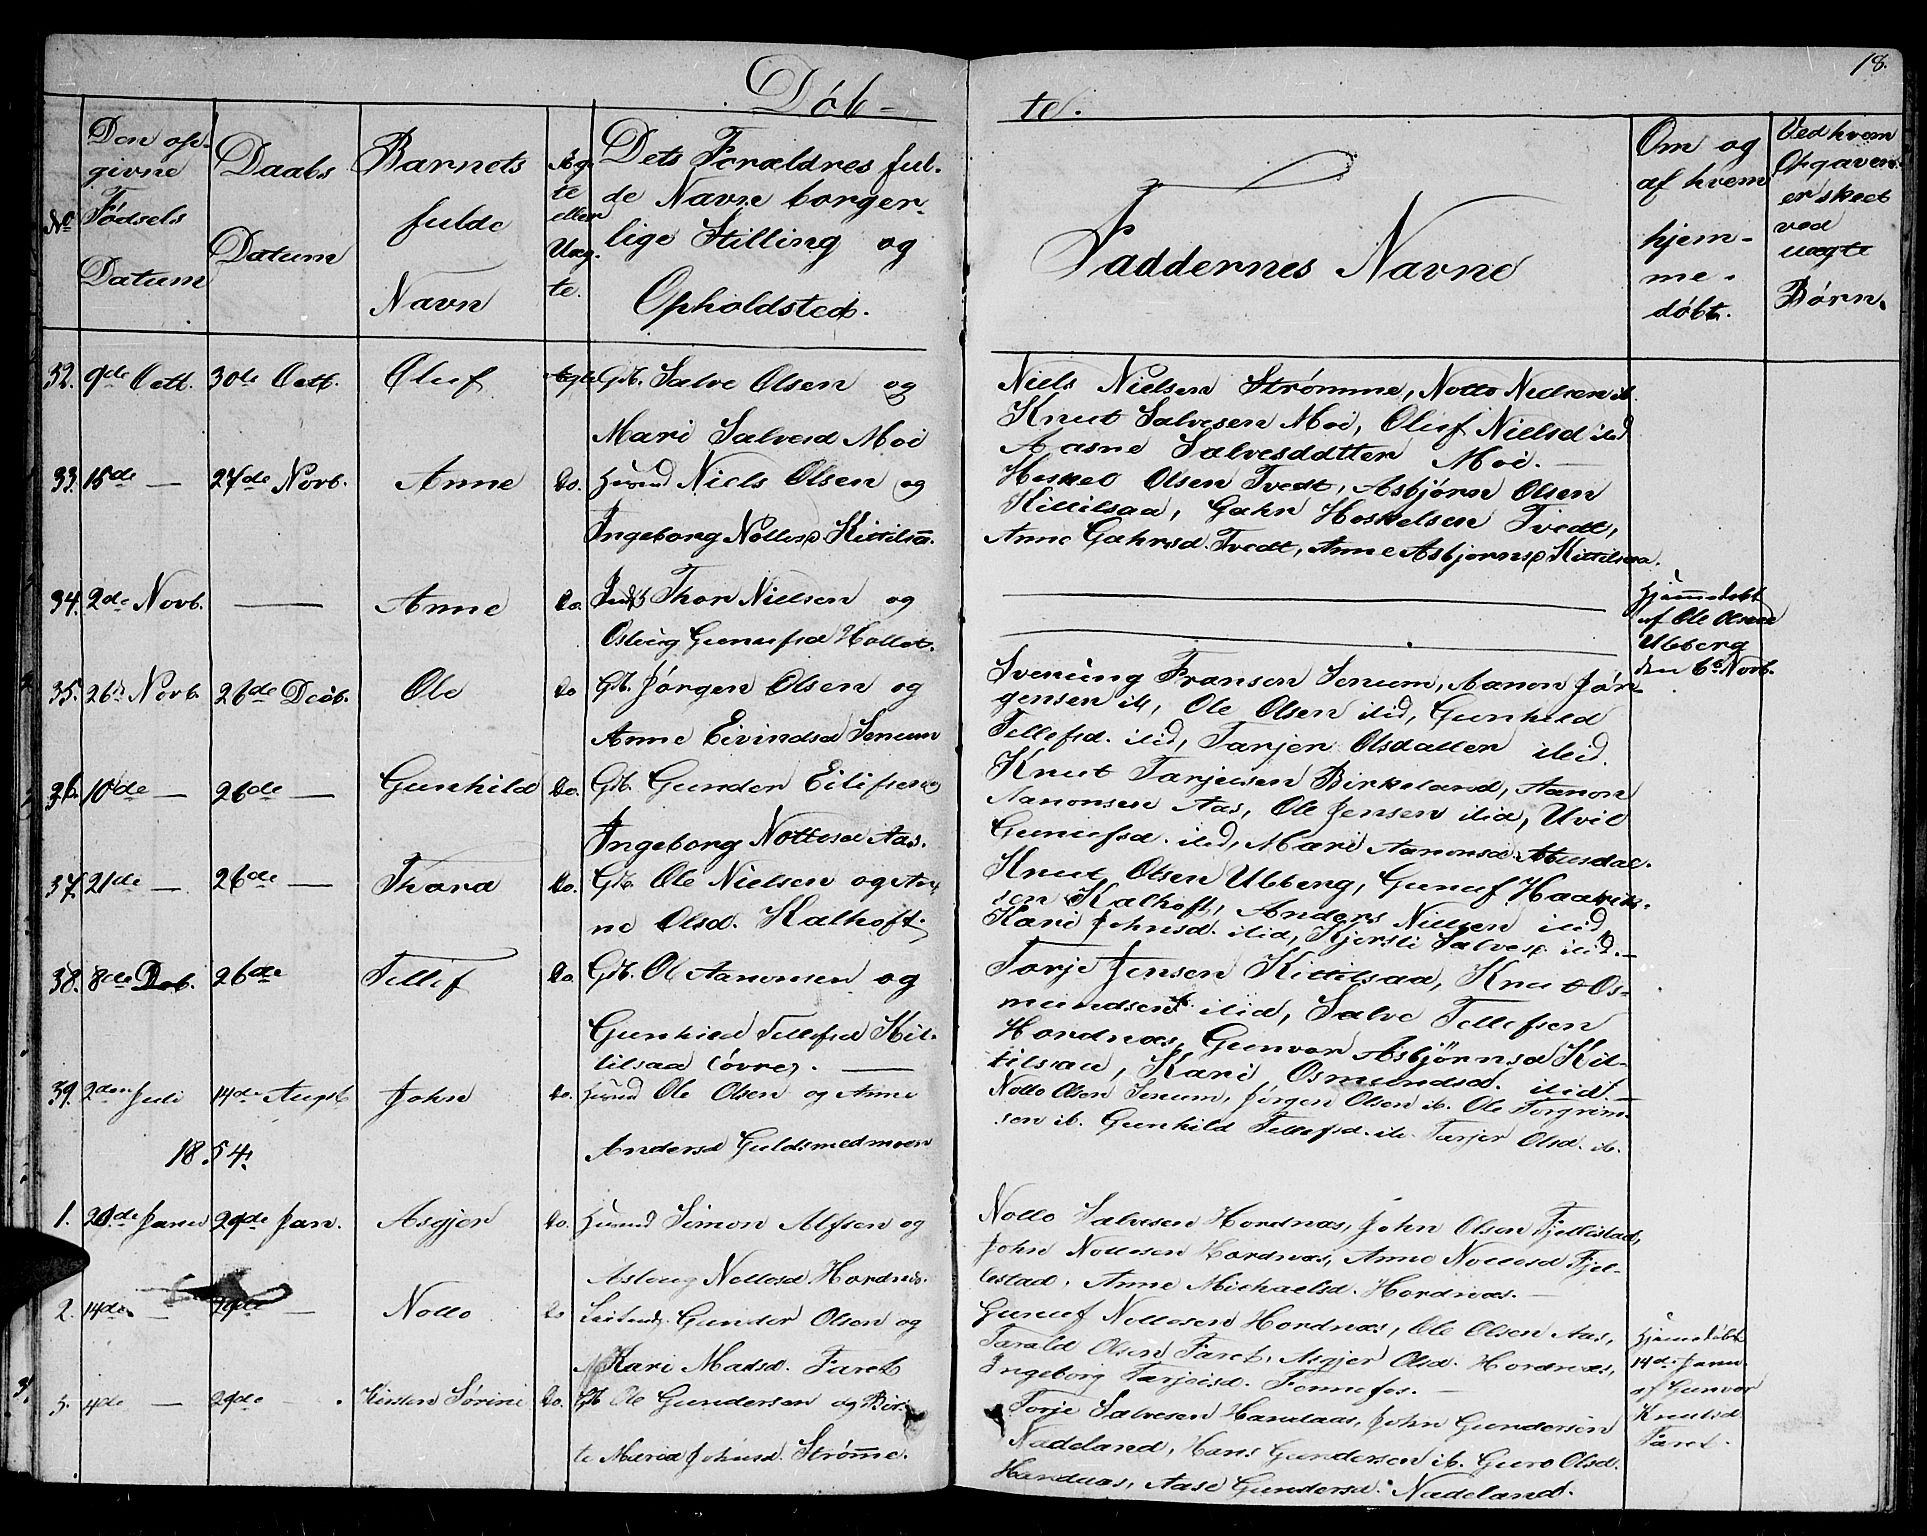 18.
Döb-
te.
No
Den op-
givne
Fødsels
Datum
Daabs
Datum
Barnets
fulde
Navn
Æg-
te
eller
Uæg-
te.
Dets Forældres ful-
de Navn borger-
lige Stilling og
Opholdsted.
Faddernes Navne
Om og
af hvem
hjem-
me-
døbt.
Ved hvem
Opgaven
er skeet
ved
uægte
Børn.
32. 9de Octb. 30de Octb. Oluf Ægte Gb. Salve Olsen og
Mari Salvesd Moi
Niels Nielsen Strømme, Notto Nielsen ib.
Knut Salvesen Moi, Oluf Nielsd ibid
Aasne Salvesdatter Moi.
33. 15de — 27de Novb. Anne Do. Huusd Niels Olsen og
Ingeborg Nottesd Kittilsaa.
Heskel Olsen Tvedt, Asbjørn Olsen
Kittilsaa, Gahr Heskelsen Tvedt,
Anne Gahrsd. Tvedt, Anne Asbjørnsd Kittilsaa.
34. 2de Novb. — Anne Do. Thor Nielsen og
Osberg Gunufsd Hollet.
Hjemmedøbt
af Ole Olsen
Ubberg
den 6e Novb.
35. 26de Novb. 26de Decb. Ole Do Gb. Jørgen Olsen og
Anne Eivindsd Senum
Svenung Fransen Senum, Aanon Jør-
gensen ib, Ole Olsen ibid, Gunhild
Tellefsd. ibid, Tarjer Olsdatter ibid.
36. 10de — 26de — Gunhild Do. Gb. Gunder Eilifsen og
Ingeborg Nottesd Aas.
Knut Tarjeisen Birkeland, Aanon
Aanonsen Aas, Ole Jensen ibid, Uvil
Gunufsd. ibid, Mari Aanonsd
37. 21de — 26de — Thora Do. Gb. Ole Nielsen og An-
ne Olsd. Kalhoft.
Knut Olsen Ubberg, Gunuf Haavers-
sen Kalhoft, Anders Nielsen ibid
Kari Johnsd. ibid, Kjersti Salvesd ibid.
38. 8de Deb. 26de Tellef Do. Gb. Ole Aanonsen og
Gunhild Tellefsd Kit-
tilsaa (øvre).
Torje Jensen Kittilsaa, Knut Os-
mundsen ibid, Salve Tellefsen
Hordnæs, Gunvor Asbjørnsd Kit-
tilsaa, Kari Osmundsd. ibid.
39. 2den Juli 14de Augst John Do. Huusd Ole Olsen og Anne
Andersd Guldsmedmoen
Notto Olsen Senum, Jørgen Olsen ib. Ole Torgrim-
sen ib. Gunhild Tellefsd. ib. Tarjer Olsd. ib.
1854.
1. 20de Janu 29de Jan. Asgjer Do. Huusd Simon Alfsen og
Aslaug Nottesd Hordnæs.
Notto Salvesen Hordnæs, John Olsen Fjellestad,
John Nottesen Hordnæs, Anne Nottesd Fjel-
lestad, Anne Michaelsd. Hordnæs.
2. 14de — 29de — Notto Do Gunder Olsen og
Kari Madsd. Faret
Gunuf Nottesen Hordnæs, Ole Olsen Aas,
Tarald Olsen Faret, Asgjer Olsd. Hordnæs,
Ingeborg Tarjeisd. Fennefos.
Hjemedøbt
14de Janu.
af Gunvor
Knutsd
Faret.
3. 4de — 29de — Kirsten Sørine Do. Gb Ole Gundersen og Bir-
te Maria Johnsd. Strømme.
Torje Salvesen Handaas, John Gundersen
Nadeland, Hans Gundersen ib. Guro Olsd.
Handaas, Aase Gundersd. Nadeland.